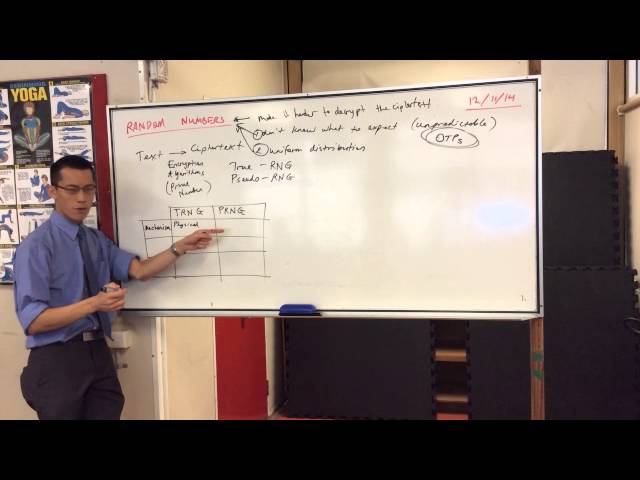 YOGA
RANDOM NUMBERS
make it harder to decrypt the ciphertext
12/11/14
① don't know what to expect (unpredictable)
OTPs
② uniform distribution
Text → Ciphertext
Encryption
Algorithms
(Prime
Number)
True - RNG
Pseudo - RNG
TRNG PRNG
Mechanism Physical